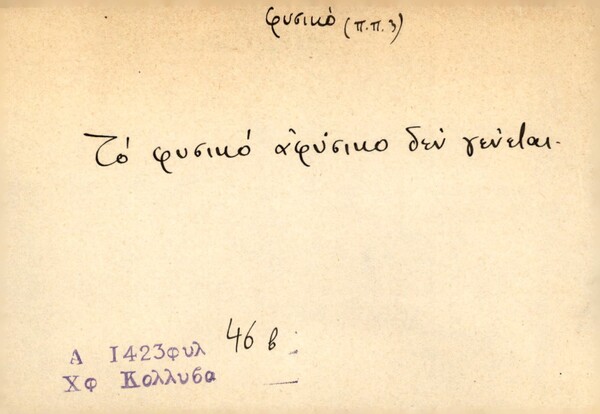 φυσικό (π.π. 3)
Τό φυσικό ἀφύσικο δέν γενεται.
Α 1423φυλ 46 β
Χφ Κολλυβα